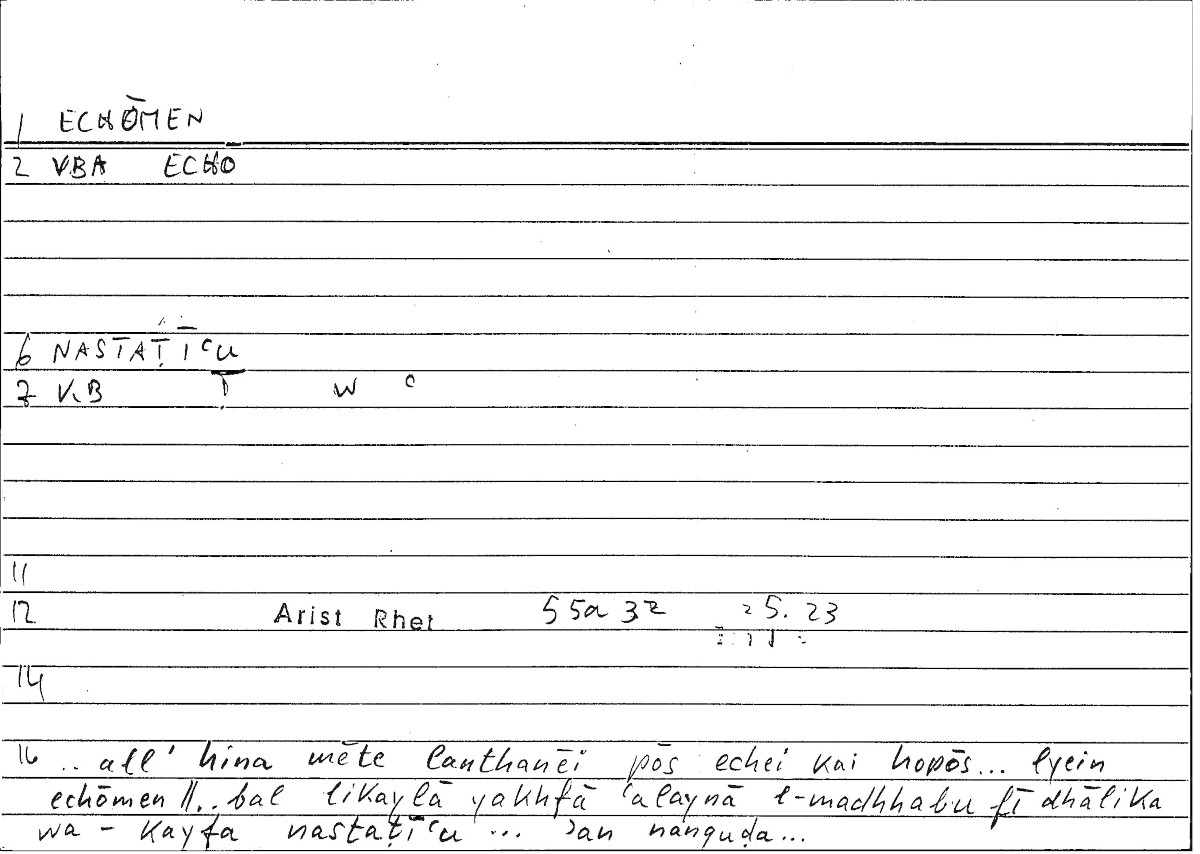 1 ECHŌMEN
2 VBA ECHO
6 NASTAṬĪʿU
7 V.B Ṭ W ʿ
11
12 Arist Rhet 55a 32 25. 23
14
16 .. all' hina mēte lanthanēi pōs echei kai hopōs... lyein
echōmen //.. bal likaylā yakhfā ʿalaynā l-madhhabu fī dhālika
wa - kayfa nastaṭīʿu ... ʾan nanquḍa...